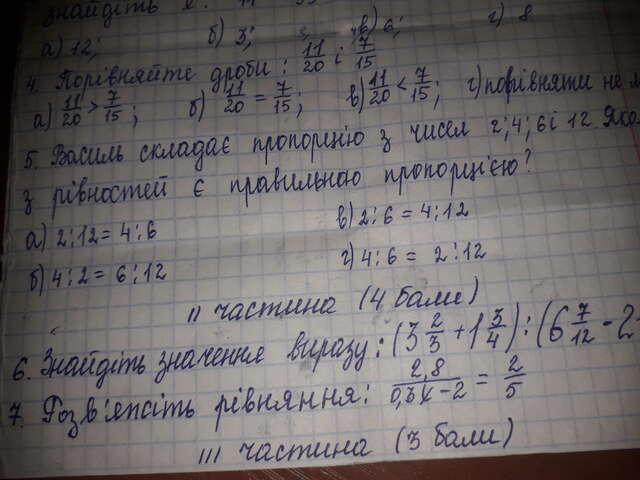 знайдіть
а) 12; б) 3; в) 6; г) 8
4. Порівняйте дроби: 11/20 і 7/15
а) 11/20 > 7/15; б) 11/20 = 7/15; в) 11/20 < 7/15; г) порівняти не
5. Василь складає пропорцію з чисел 2; 4; 6 і 12.
з рівностей є правильною пропорцією?
а) 2:12 = 4:6 в) 2:6 = 4:12
б) 4:2 = 6:12 г) 4:6 = 2:12
II частина (4 бали)
6. Знайдіть значення виразу: (3 2/3 + 1 3/4) : (6 7/12 - 2
7. Розв'яжіть рівняння: 2,8/(0,3x - 2) = 2/5
III частина (3 бали)